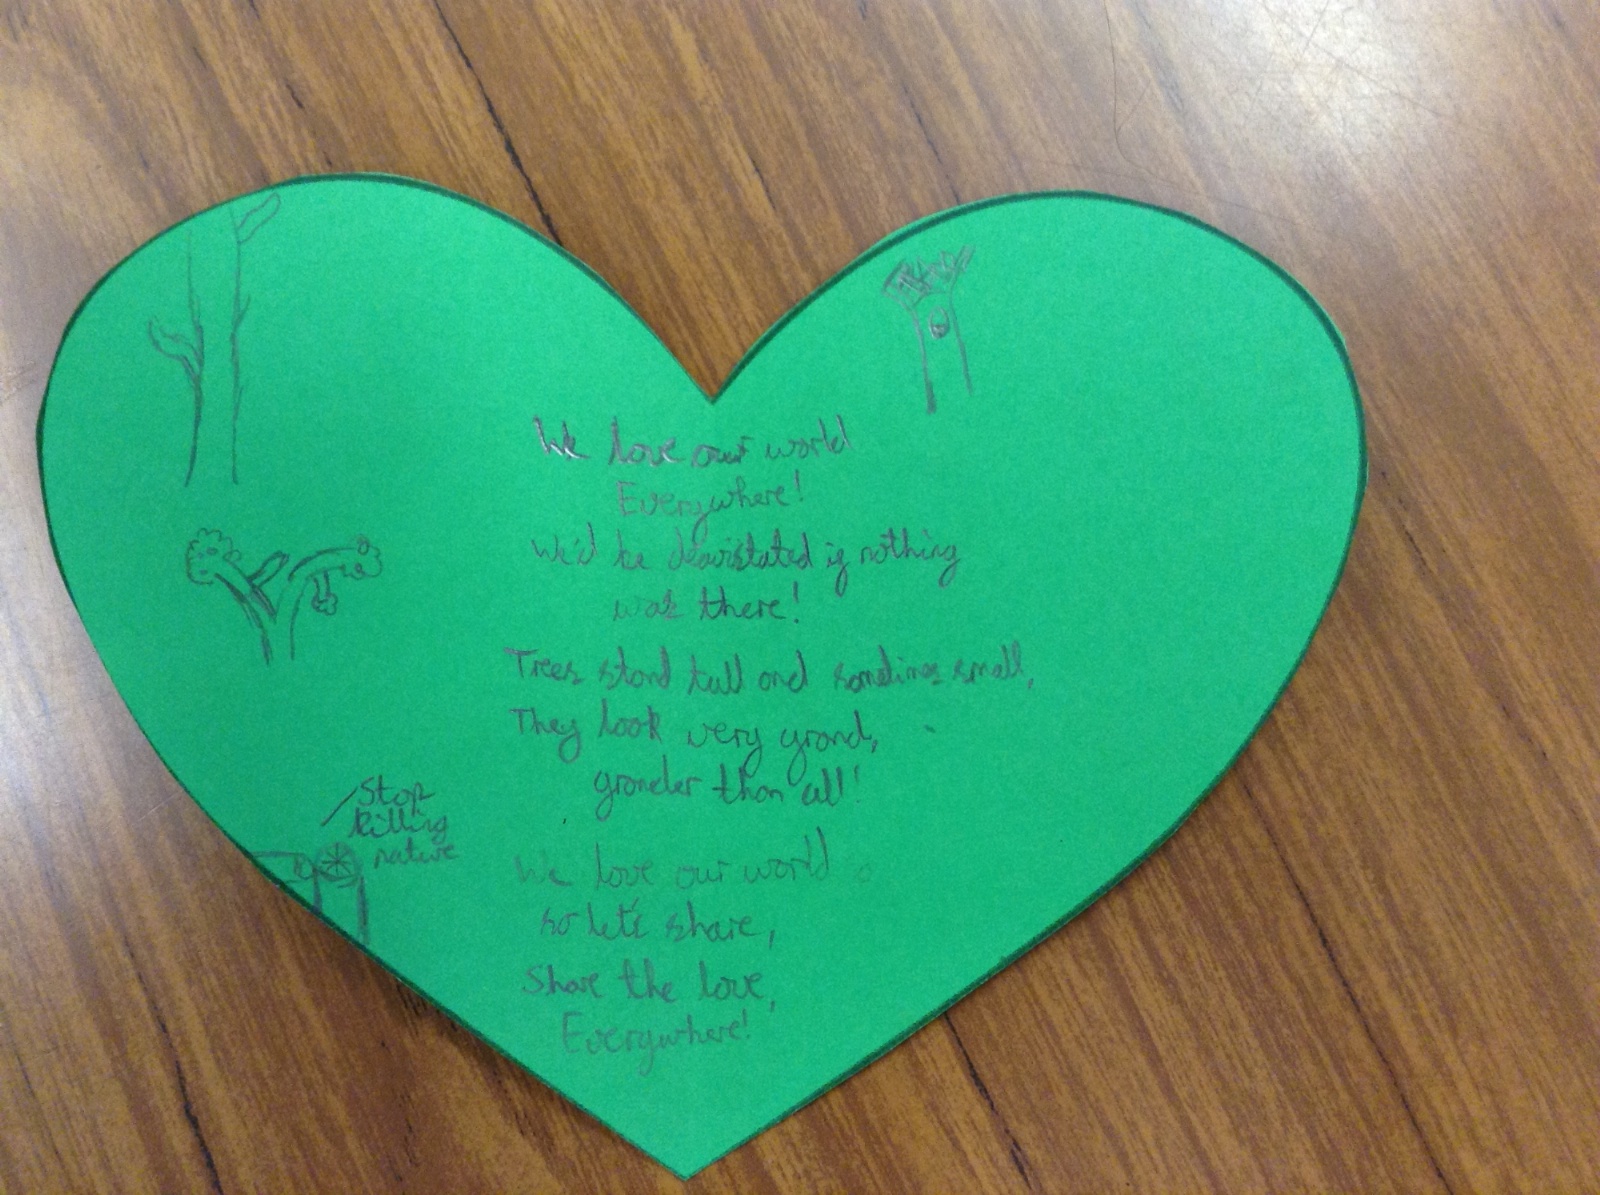 We love our world
Everywhere!
We'd be deavistated if nothing
was there!
Trees stand tall and somtimes small,
They look very grand,
grander than all!
We love our world
so let's share,
Share the love,
Everywhere!
Stop
killing
nature